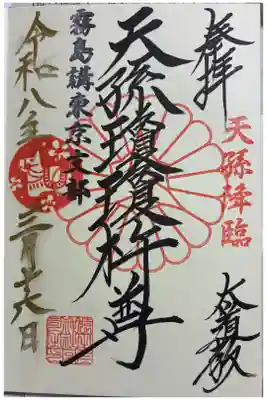 奉拝
天孫降臨
大道教
天孫瓊瓊杵尊
霧島講東京支部
令和八年
三月 日